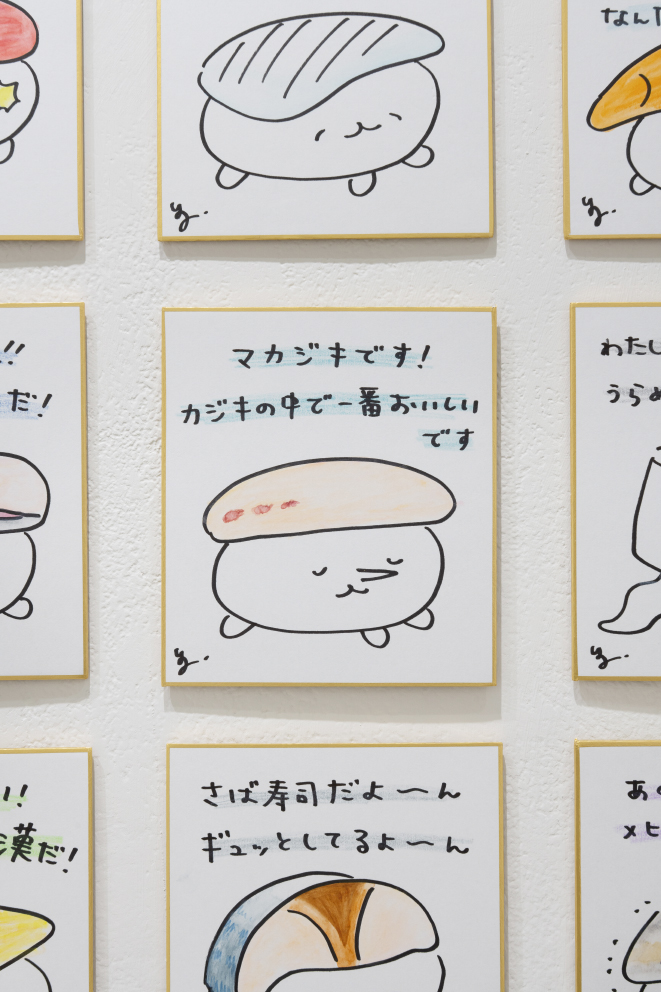 なん
マカジキです！
カジキの中で一番おいしい
です
！！
だ！
わたし
うらめ
さば寿司だよ〜ん
ギュッとしてるよ〜ん
い！
漢だ！
あの
メヒ